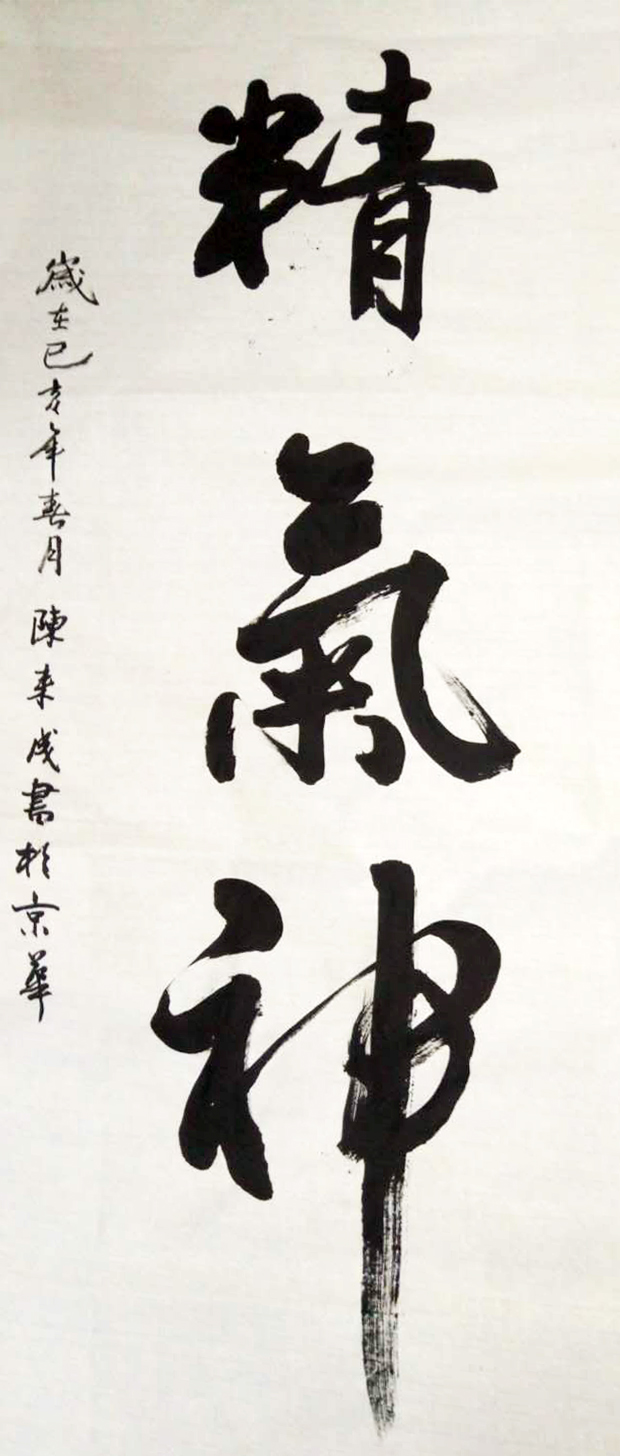 精氣神
歲在己亥年春月 陳来成書於京華